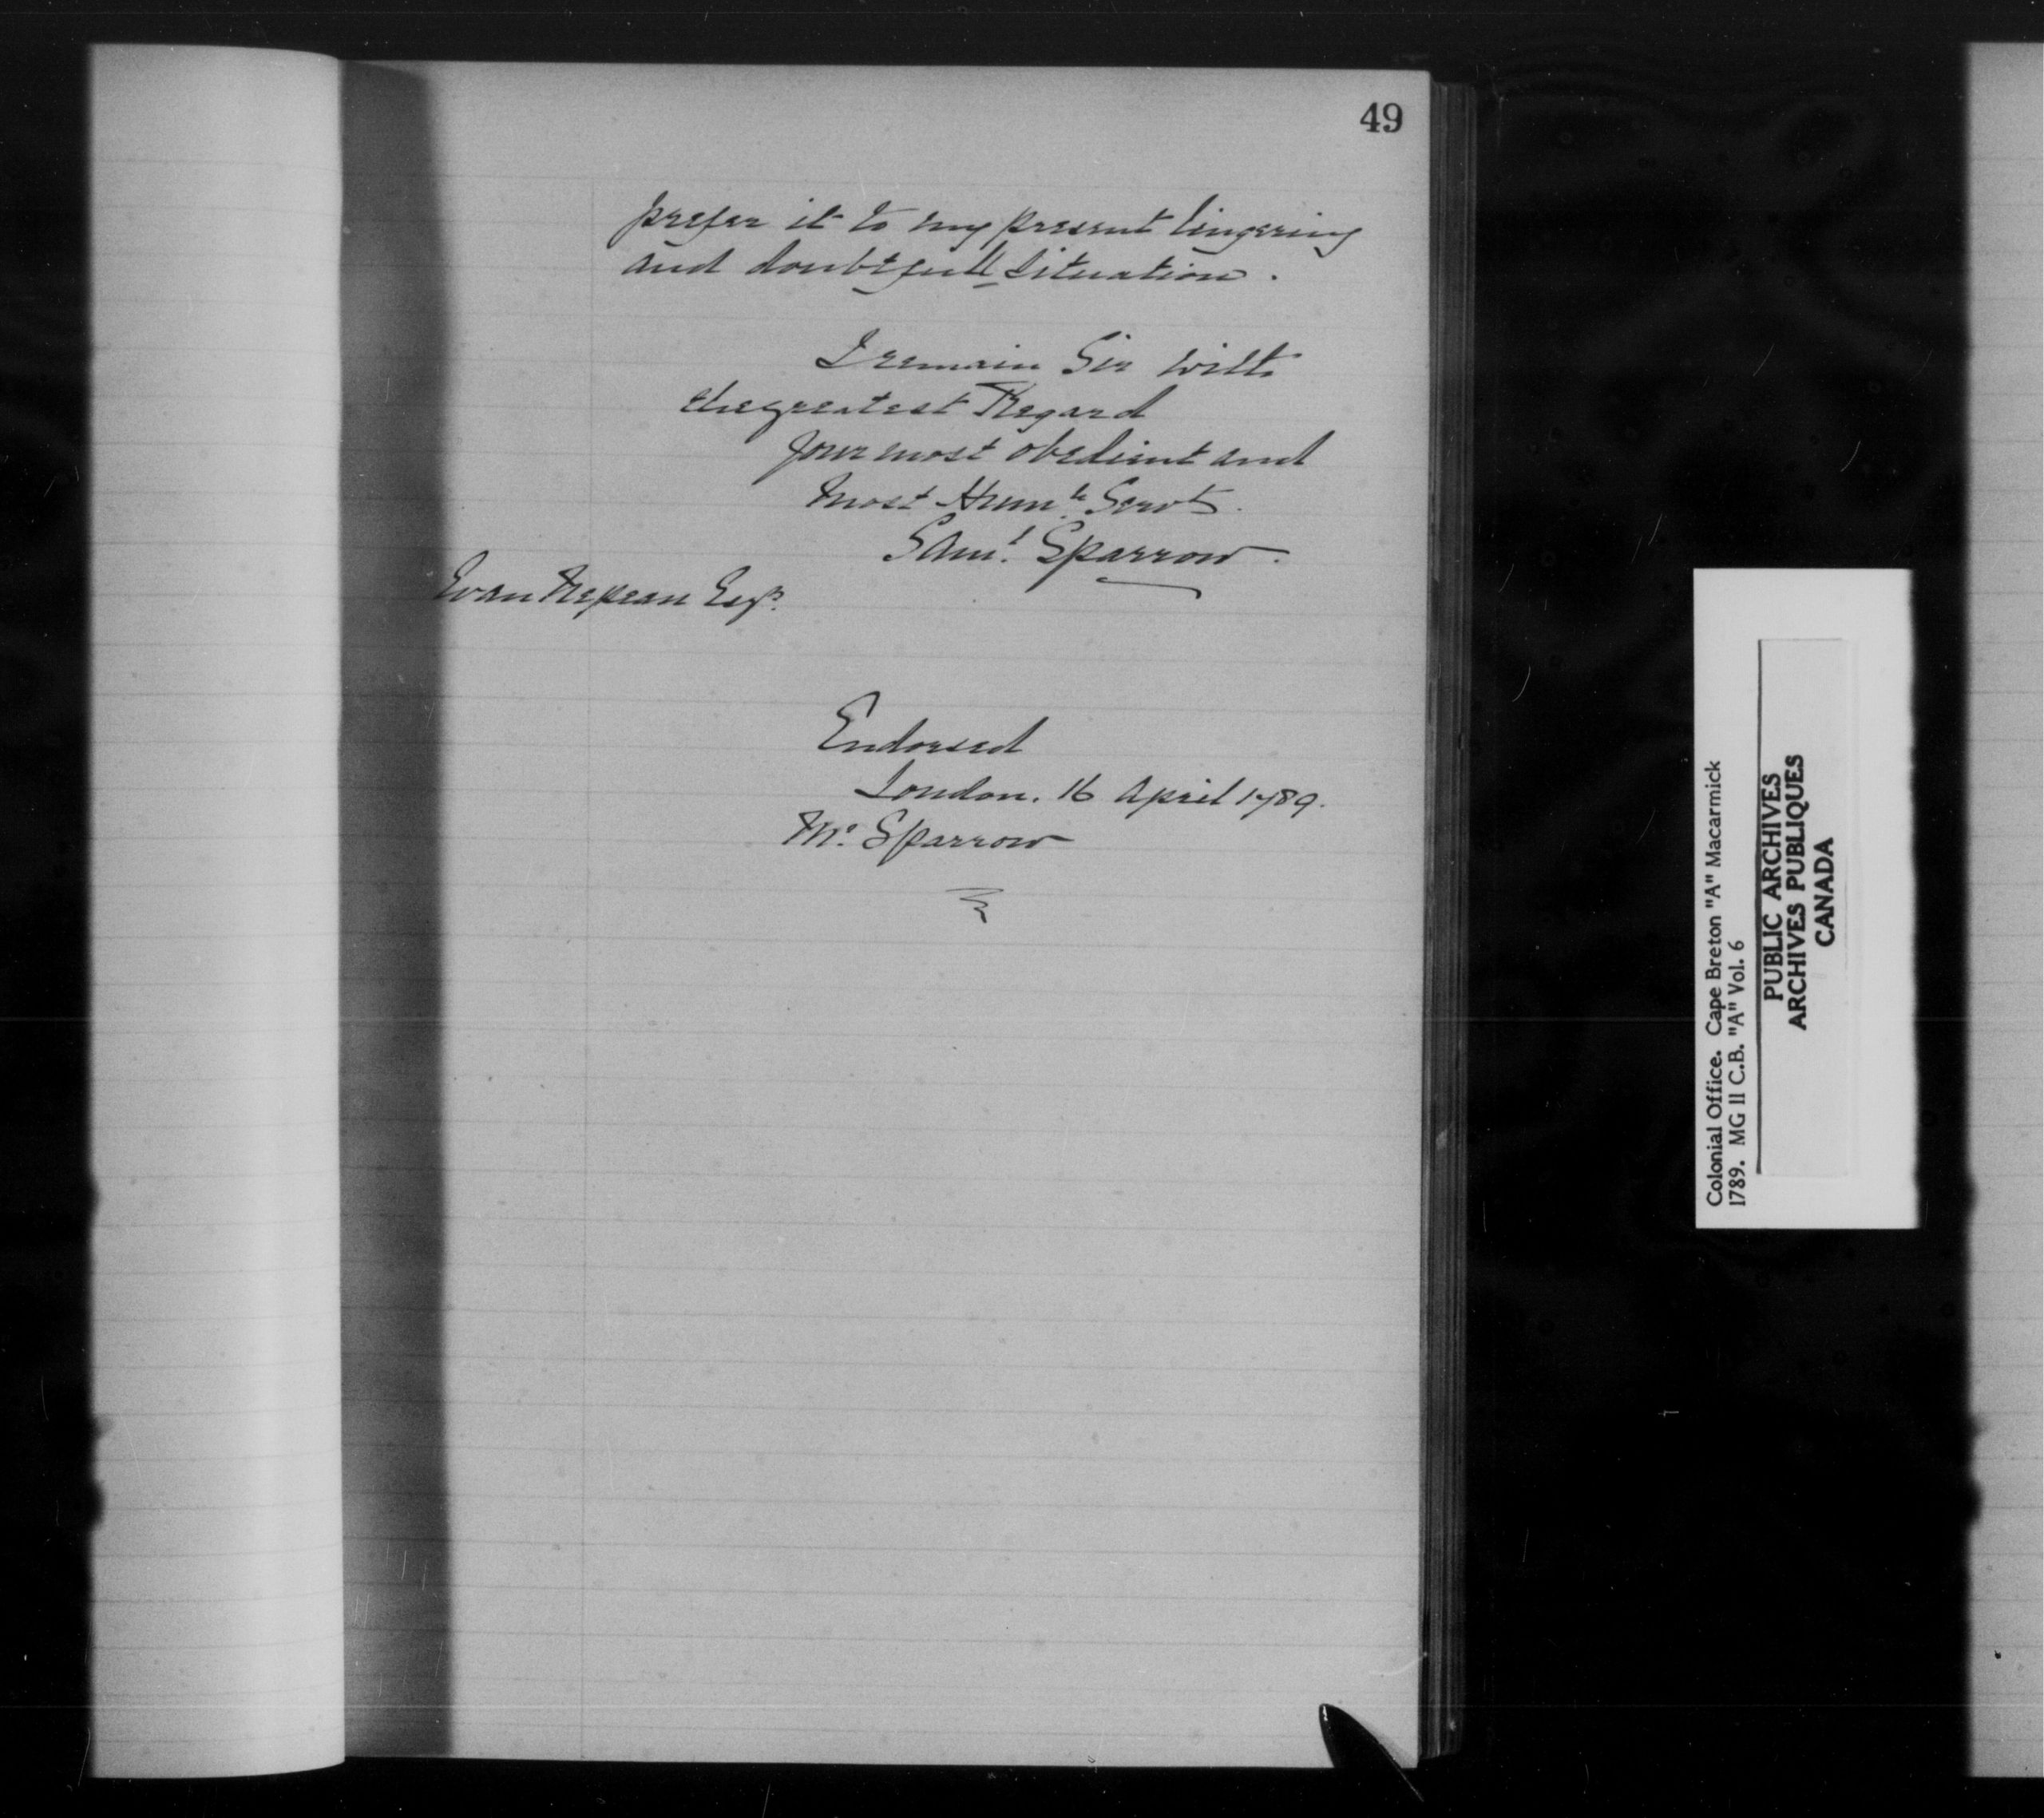 49
prefer it to my present lingering
and doubtfull situation.
I remain Sir with
the greatest Regard
your most obedient and
most Humle Servt.
Saml. Sparrow.
Evan Nepean Esqr.
Endorsed
London. 16 April 1789.
Mr. Sparrow
Colonial Office. Cape Breton "A" Macarmick
1789. MG 11 C.B. "A" Vol. 6
PUBLIC ARCHIVES
ARCHIVES PUBLIQUES
CANADA